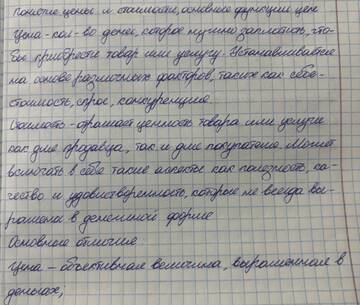 Понятие цены и стоимости, основные функции цен
Цена - кол-во денег, которое нужно заплатить, что-
бы приобрести товар или услугу. Устанавливается
на основе различных факторов, таких как себе-
стоимость, спрос, конкуренция.
Стоимость - отражает ценность товара или услуги
как для продавца, так и для покупателя. Может
включать в себя такие аспекты как полезность, ка-
чество и удовлетворенность, которые не всегда вы-
ражены в денежной форме
Основное отличие
Цена - объективная величина, выраженная в
деньгах,